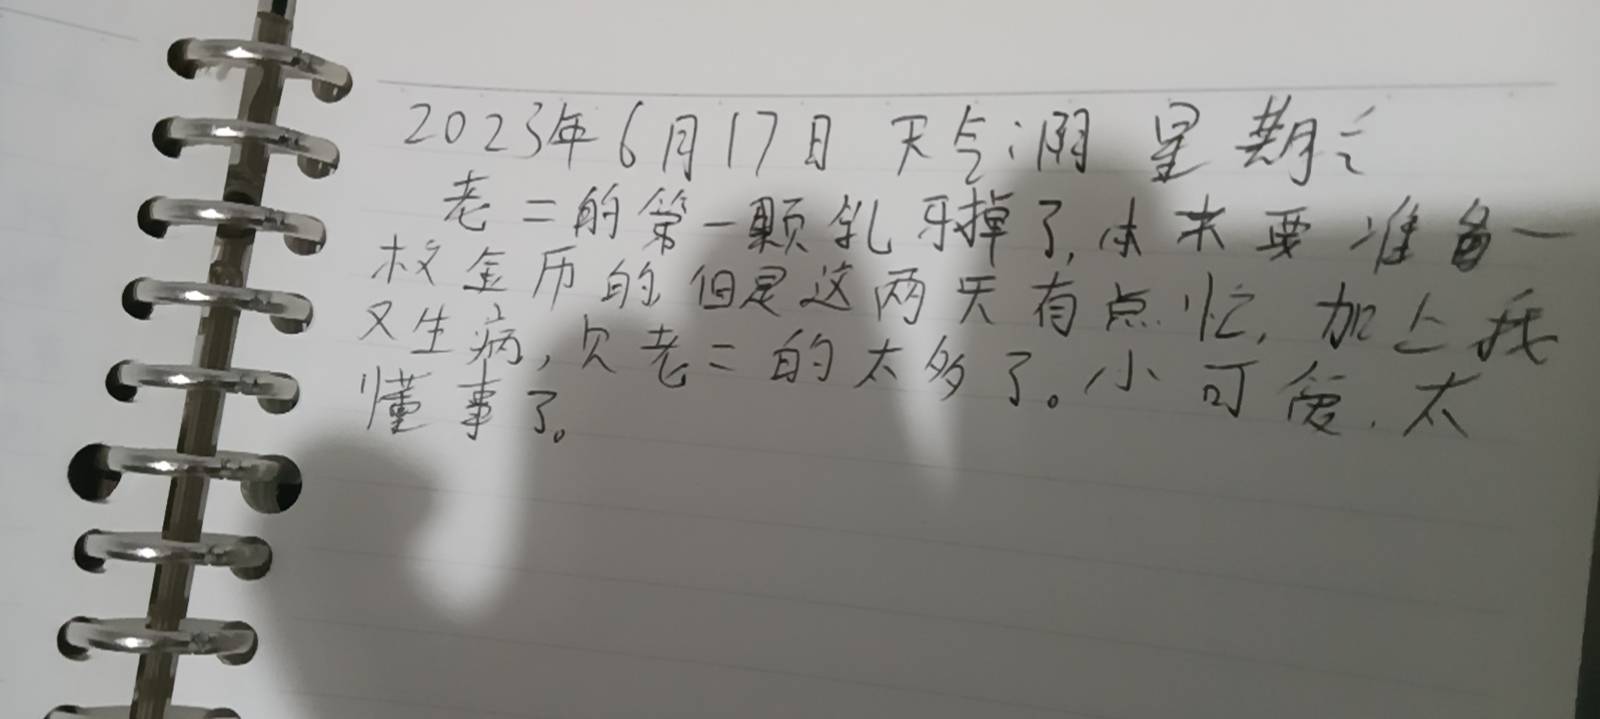 2023年6月17日 天气:阴 星期六
老二的第一颗乳牙掉了,本来要准备一
枚金币的但是这两天有点忙,加上我
又生病,欠老二的太多了。小可爱.太
懂事了。